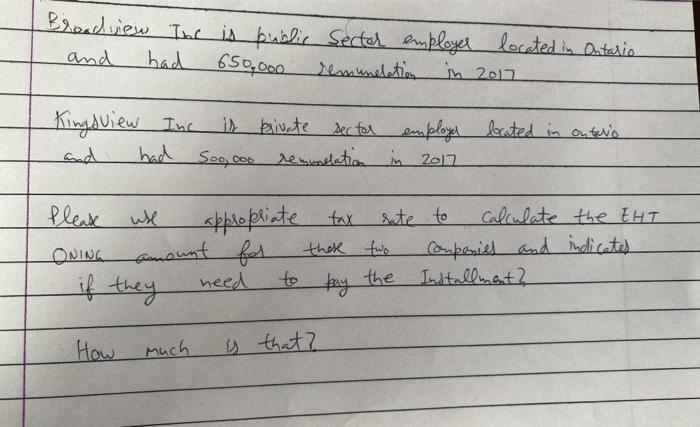 Broadview Inc is public Sector employer located in Ontario
and had 650,000 remunelation in 2017
Kingsview Inc is private sector employer located in ontario
and had 500,000 remunelation in 2017
Please use appropriate tax rate to calculate the EHT
OWING amount for these two companies and indicates
if they need to pay the Installment?
How much is that?